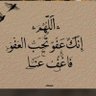 اللَّهُمَّ
إِنَّكَ عَفُوٌّ تُحِبُّ الْعَفْوَ
فَاعْفُ عَنَّا